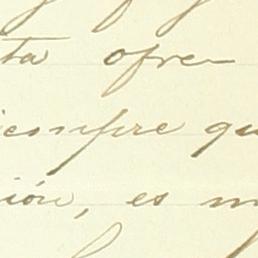 ta ofre
iempre qu
ión, es m